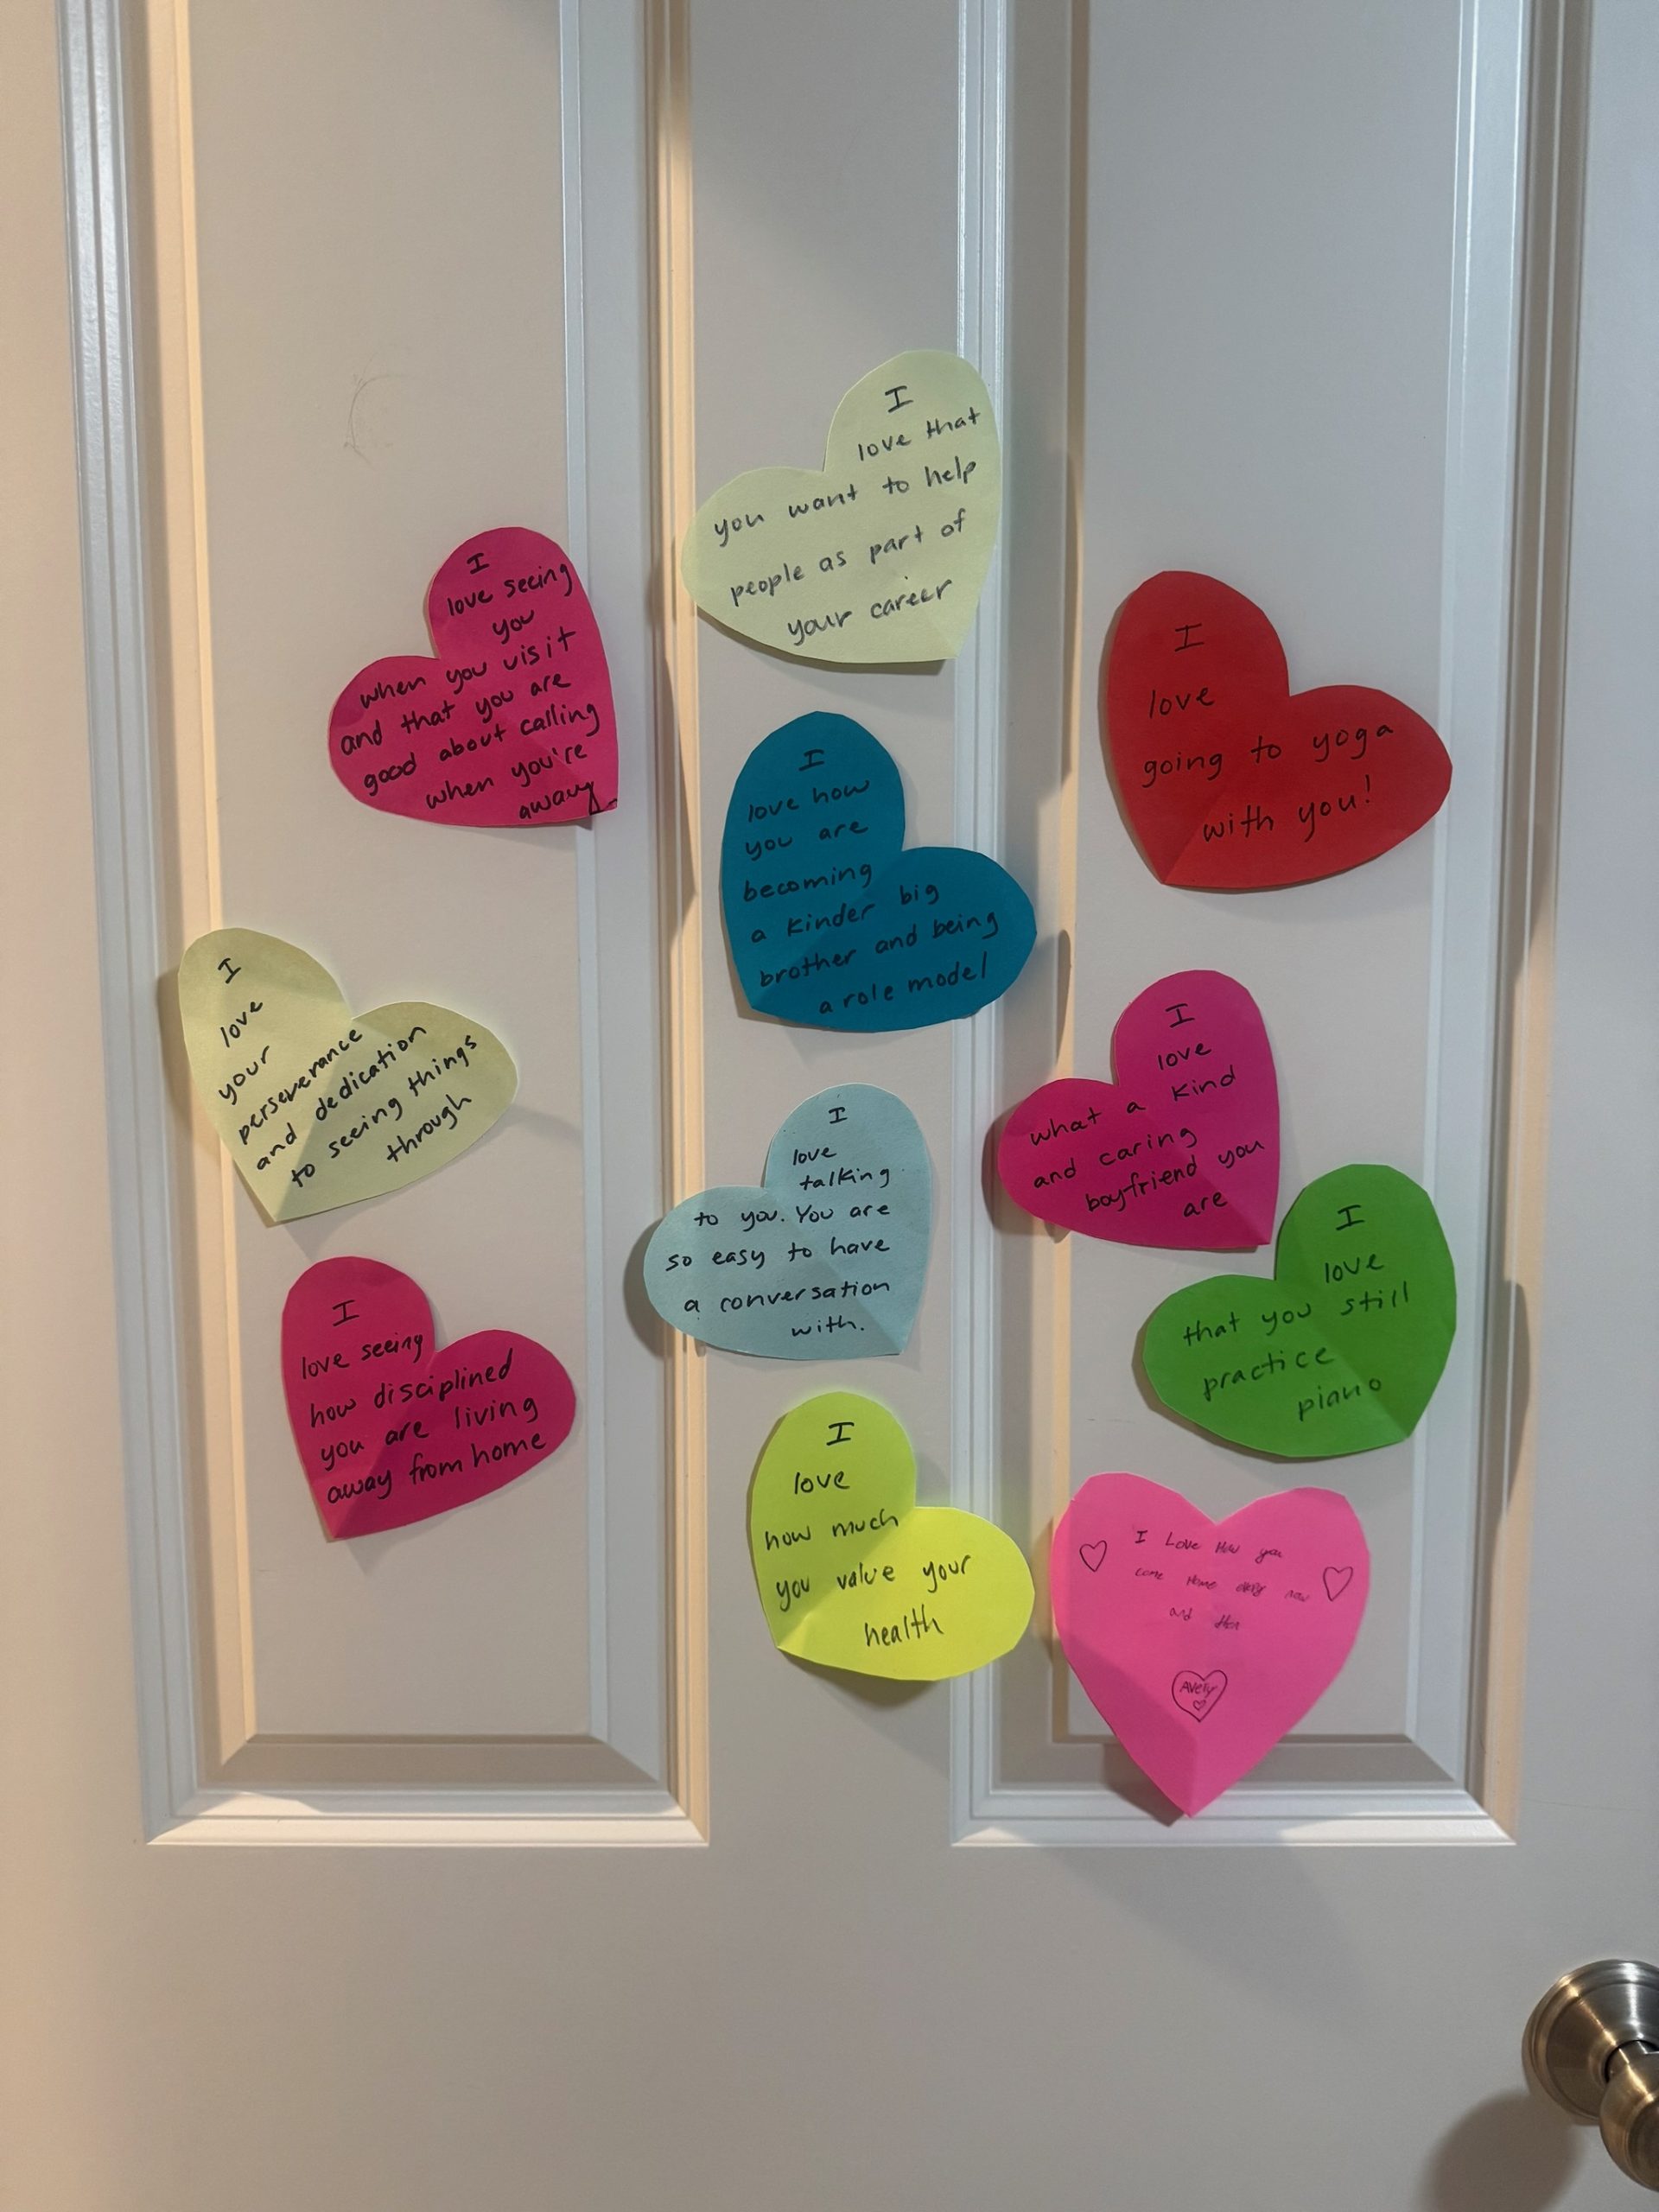 I
love that
you want to help
people as part of
your career
I
love seeing
you
when you visit
and that you are
good about calling
when you're
away
I
love
going to yoga
with you!
I
love how
you are
becoming
a kinder big
brother and being
a role model
I
love
your
perseverance
and dedication
to seeing things
through
I
love
what a kind
and caring
boyfriend you
are
I
love
talking
to you. You are
so easy to have
a conversation
with.
I
love
that you still
practice
piano
I
love seeing
how disciplined
you are living
away from home
I
love
how much
you value your
health
I Love How you
come Home every now
and then
Avely